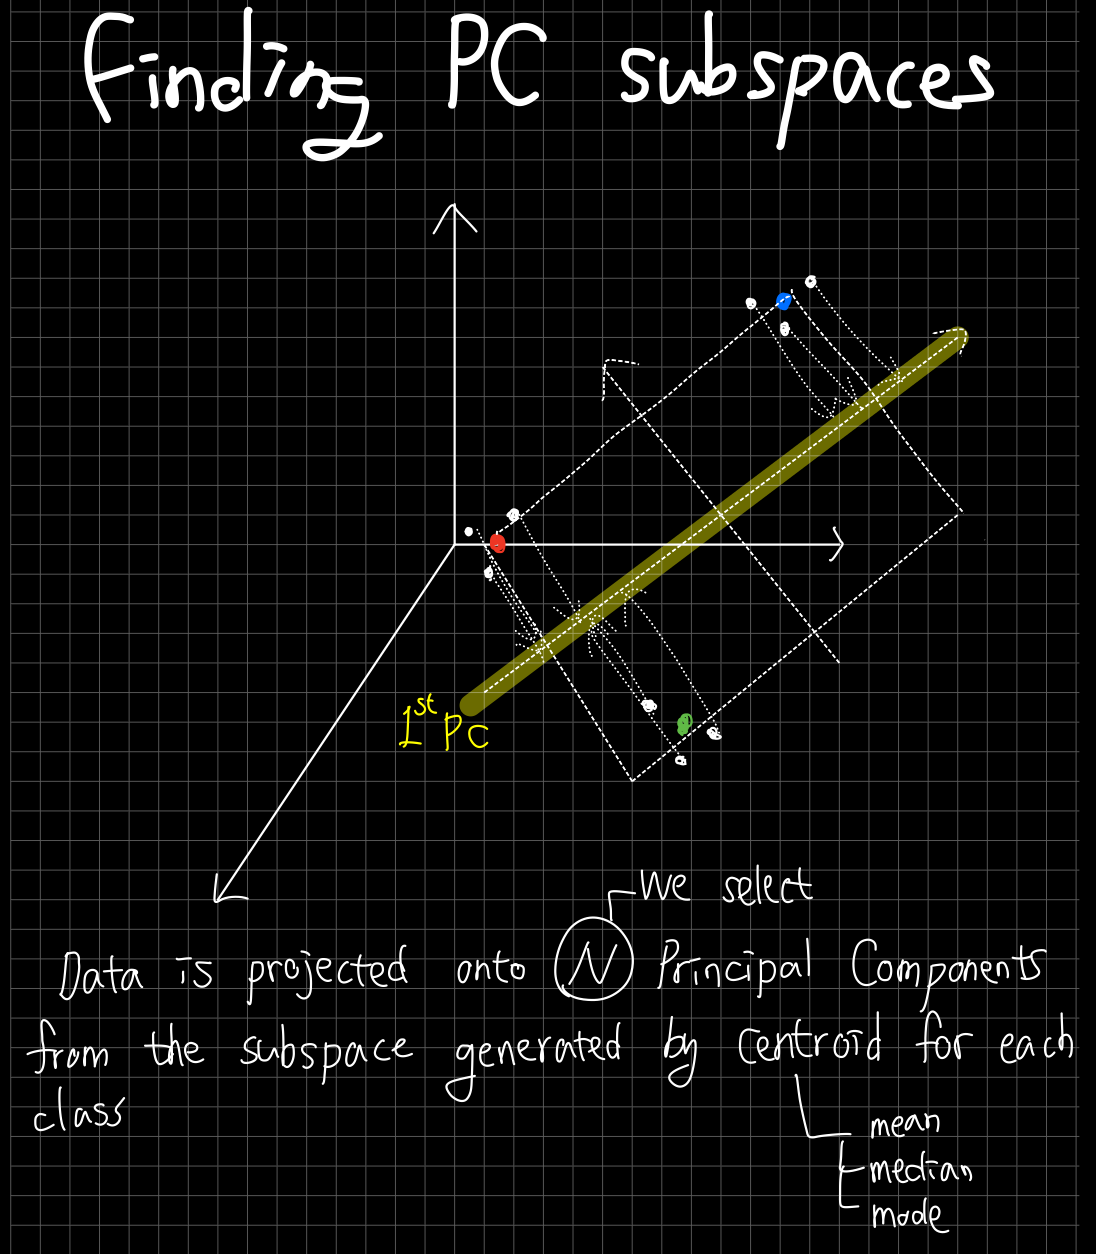 Finding PC subspaces
1st PC
We select
Data is projected onto N Principal Components
from the subspace generated by centroid for each
class
mean
median
mode